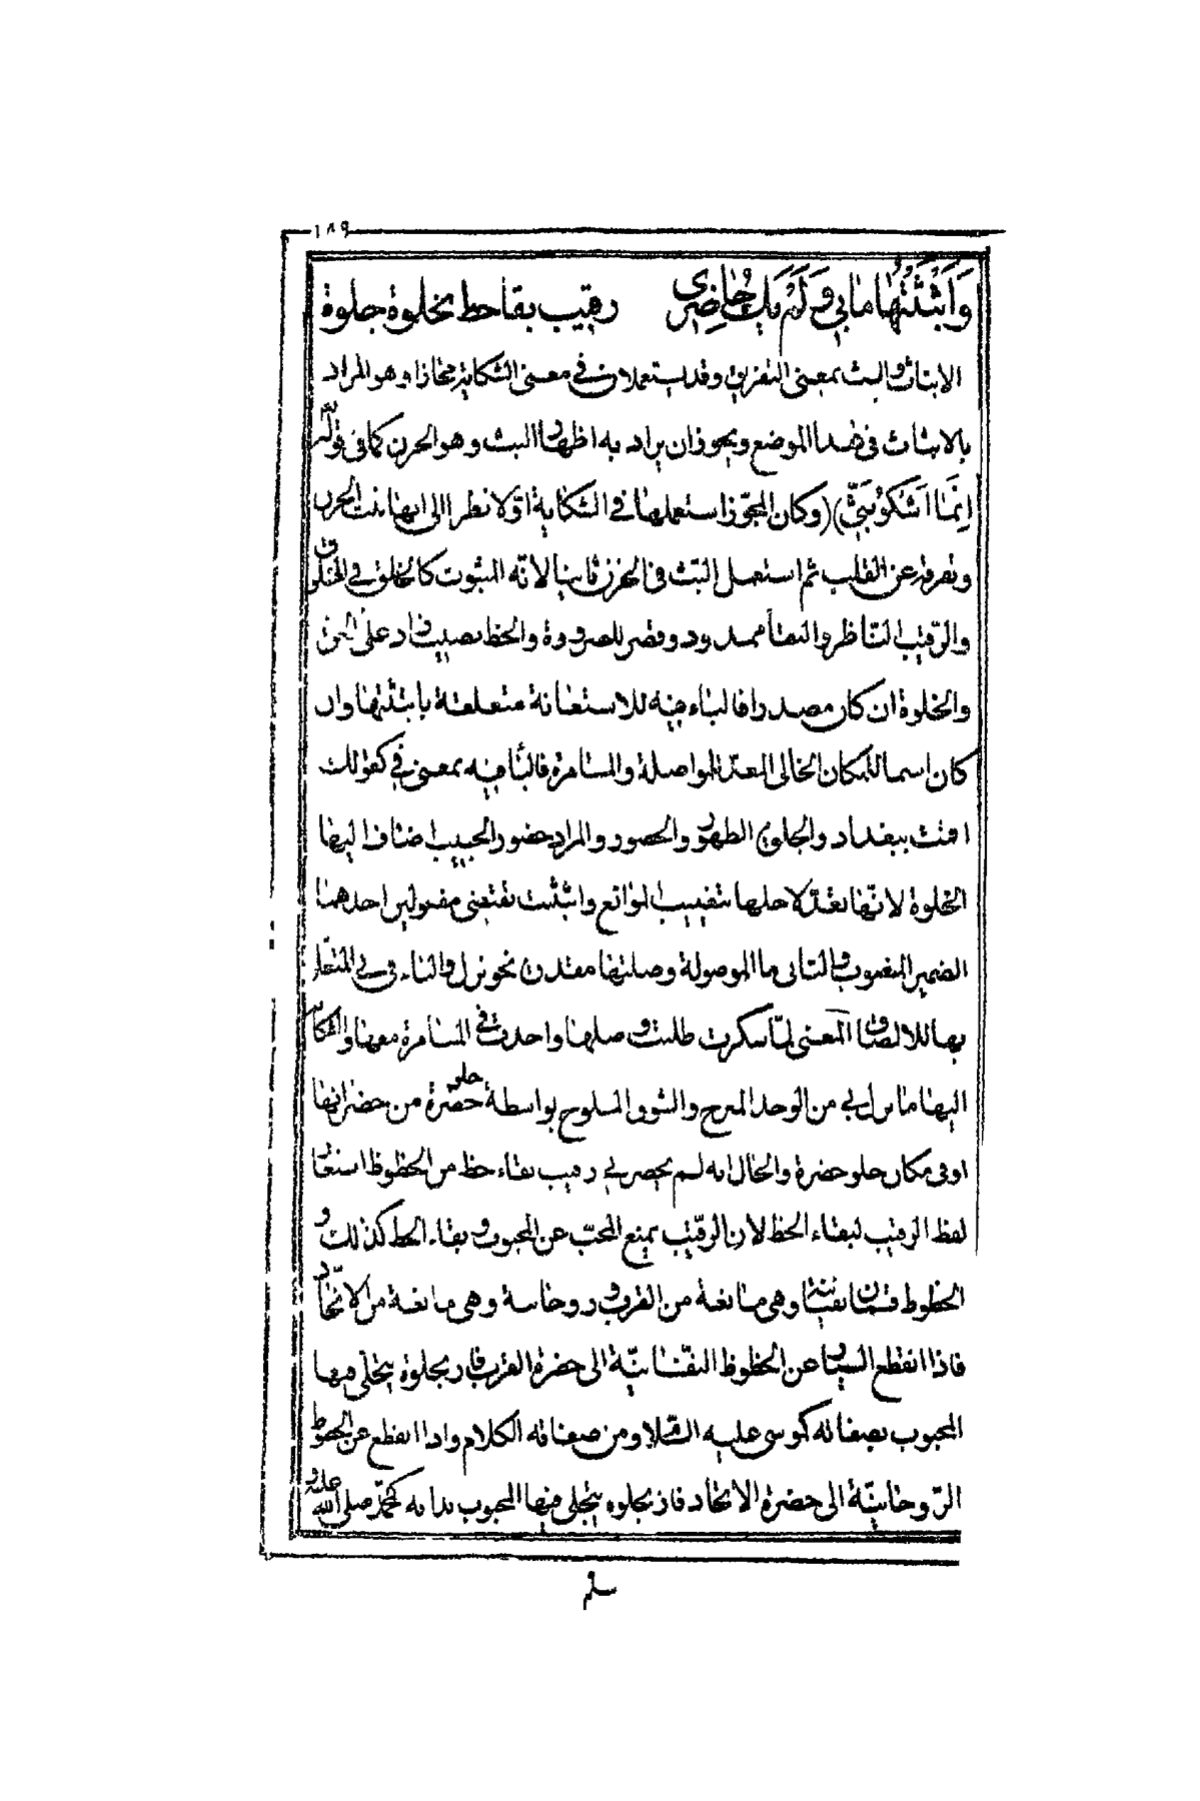 ١٨٩
وَاَبْثَثْتُهَا مَابِي وَلَمْ يَكُ حَاضِرِى رقيب بقا حظ بخلوة جلوة
الابثاث والبث بمعنى التفريق وقد يستعملان فى معنى الشكاية مجازا وهو المراد
بالابثاث فى هذا الموضع ويجوز ان يراد به اظهار البث وهو الحزن كما فى قوله
اِنَّمَا اَشْكُو بَثِّى) (وكان المجوّز استعملها فى الشكاية اوّلا نظرا الى انها بث الحزن
وتفرقه عن القلب ثم استعمل البث فى الحزن ثانيا لانّه المبثوث كالخلق فى المخلوق
والرّقيب الناظر والبقا ممدود وقصر للضرورة والحظ نصيب زاد على الحق
والخلوة ان كان مصدرا فالباء فيه للاستعانة متعلقة بابثثتها وان
كان اسما للمكان الخالى المعدّ للمواصلة والمسامرة فالبا فيه بمعنى فى كقولك
اقمت ببغداد والجلوة الظهور والحضور والمراد حضور الحبيب اضاف اليها
الخلوة لانّها تعدّ لاجلها بتغييب الموانع وابثثت تقتضى مفعولين احدهما
الضمير المنصوب والثانى ما الموصولة وصلتها مقدرة نحو نزل والباء فى بى المتعلق
بها للالصاق المعنى لمّا سكرت طلبت وصلها واخذت فى المسامرة معها والشكاية
اليها ما نزل بى من الوجد المبرح والشوق الملوح بواسطة خلو حضرة من حضراتها
اوفى مكان خلو حضرة والحال انه لم يحضر لى رقيب بقاء حظ من الحظوظ استعار
لفظ الرقيب لبقاء الحظ لان الرقيب يمنع المحبّ عن المحبوب وبقاء الحظ كذلك و
الحظوظ قسمان نفسانية وهى مانعة من القرب وروحانية وهى مانعة من الاتّحاد
فاذا انقطع السيار عن الحظوظ النفسانيّة الى حضرة القرب فاز بجلوة يتجلى فيها
المحبوب بصفاته كموسى عليه السّلام ومن صفاته الكلام واذا انقطع عن الحظوظ
الرّوحانيّة الى حضرة الاتحاد فاز بجلوه يتجلى فيها المحبوب بذاته كمحمّد صلى الله عليه و
سلم